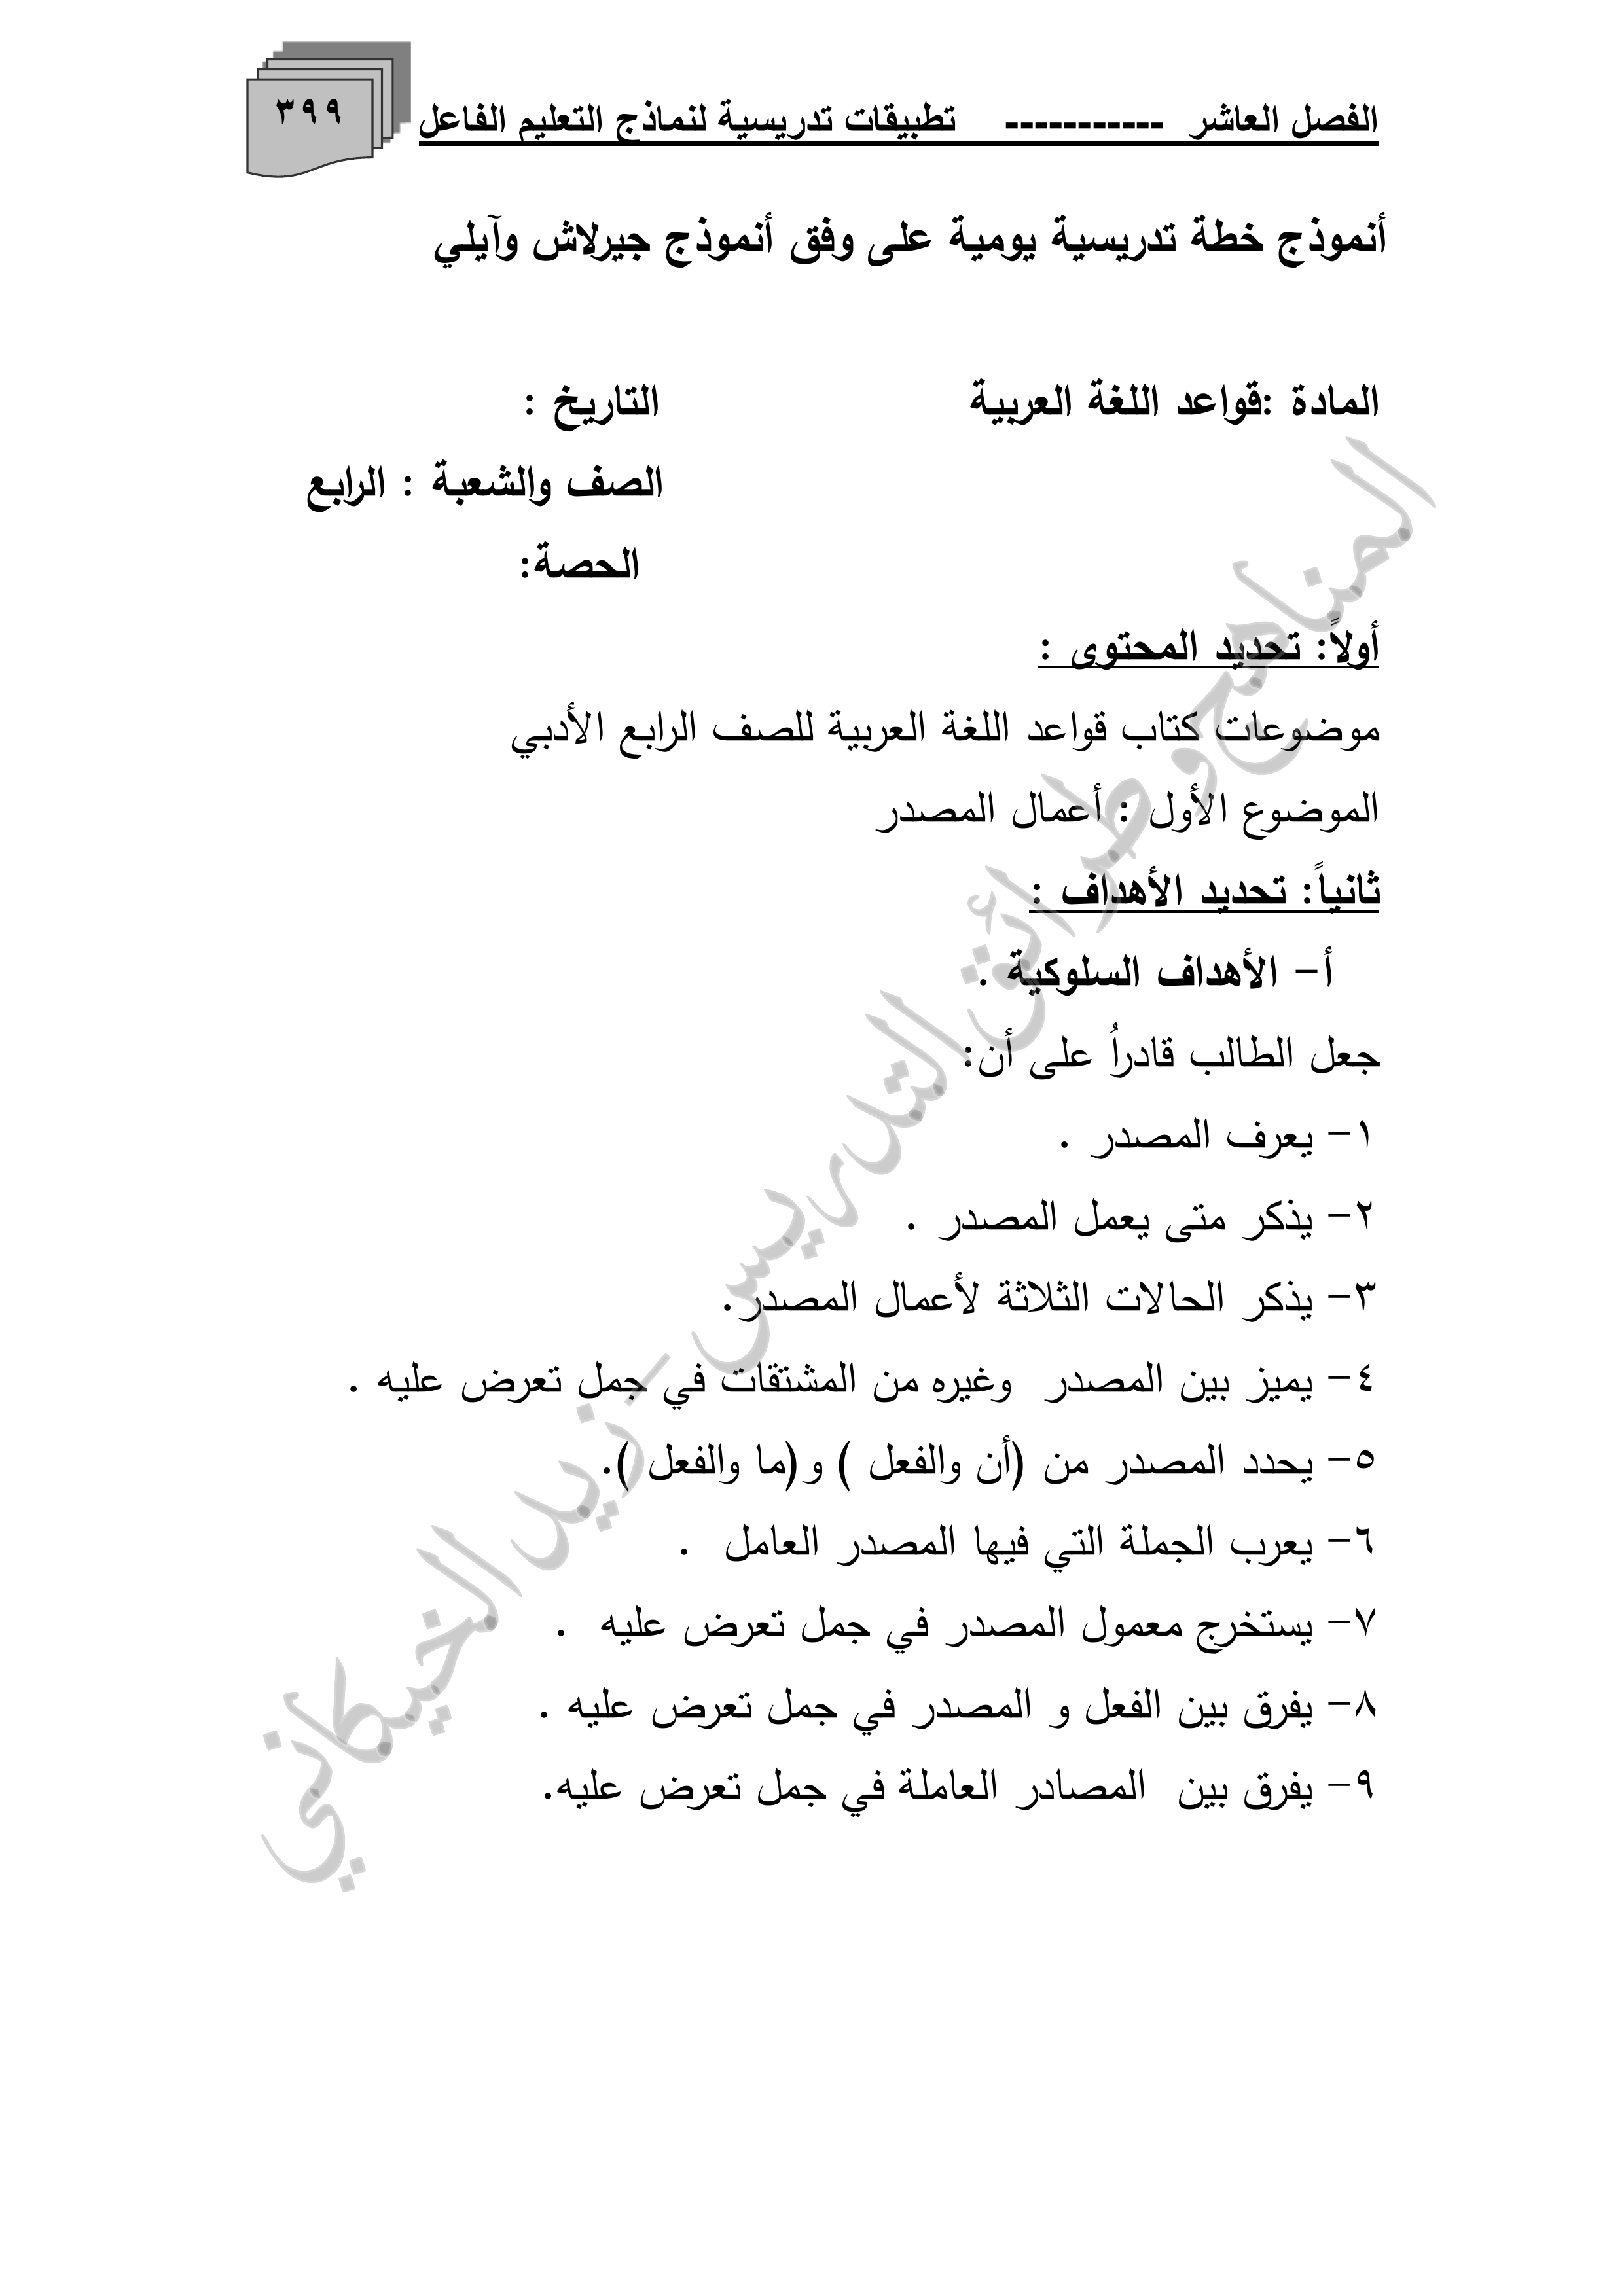 الفصل العاشر ----------- تطبيقات تدريسية لنماذج التعليم الفاعل
٣٩٩
أنموذج خطة تدريسية يومية على وفق أنموذج جيرلاش وآيلي
المادة :قواعد اللغة العربية التاريخ :
الصف والشعبة : الرابع
الحصة:
أولاً: تحديد المحتوى :
موضوعات كتاب قواعد اللغة العربية للصف الرابع الأدبي
الموضوع الأول : أعمال المصدر
ثانياً: تحديد الأهداف :
أ- الأهداف السلوكية .
جعل الطالب قادراُ على أن:
١- يعرف المصدر .
٢- يذكر متى يعمل المصدر .
٣- يذكر الحالات الثلاثة لأعمال المصدر.
٤- يميز بين المصدر وغيره من المشتقات في جمل تعرض عليه .
٥- يحدد المصدر من (أن والفعل ) و(ما والفعل ).
٦- يعرب الجملة التي فيها المصدر العامل .
٧- يستخرج معمول المصدر في جمل تعرض عليه .
٨- يفرق بين الفعل و المصدر في جمل تعرض عليه .
٩- يفرق بين المصادر العاملة في جمل تعرض عليه.
المناهج وطرائق التدريس - زيد الخيكاني